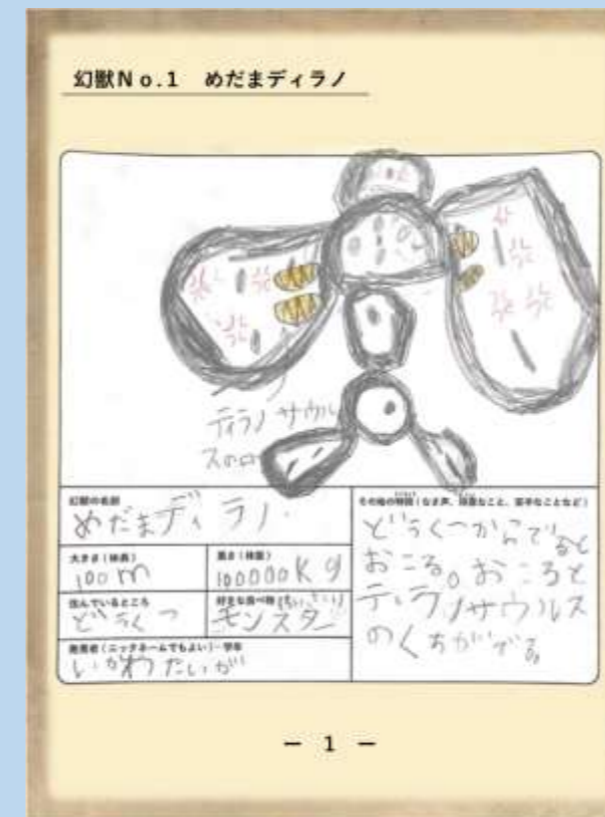 幻獣No.1 めだまディラノ
ティラノサウル
スのロ
幻獣の名前
めだまディラノ.
大きさ(体長)
100m
重さ(体重)
100000Kg
住んでいるところ
どうくつ
好きな食べ物
モンスター
発見者(ニックネームでもよい)・学年
いがわたいが
その他の特徴(なき声、得意なこと、苦手なことなど)
どうくつからでると
おこる。おこると
ティラノサウルス
のくちがでる
− 1 −